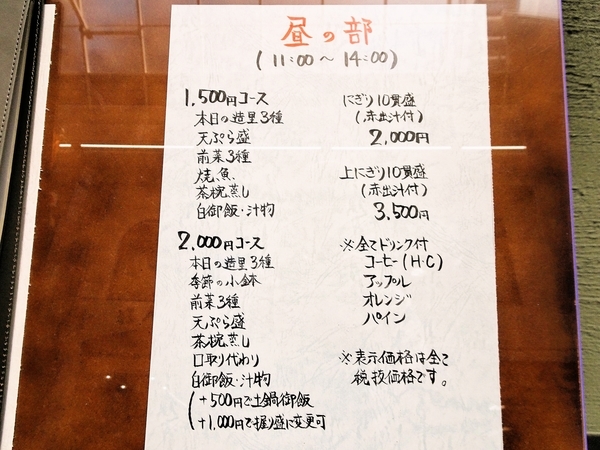 昼の部
(11:00～14:00)
1,500円コース
本日の造里3種
天ぷら盛
前菜3種
焼魚
茶椀蒸し
白御飯・汁物
2,000円コース
本日の造里3種
季節の小鉢
前菜3種
天ぷら盛
茶椀蒸し
口取り代わり
白御飯・汁物
(+500円で土鍋御飯
+1,000円で握り盛に変更可
にぎり10貫盛
(赤出汁付)
2,000円
上にぎり10貫盛
(赤出汁付)
3,500円
※全てドリンク付
コーヒー(H・C)
アップル
オレンジ
パイン
※表示価格は全て
税抜価格です。